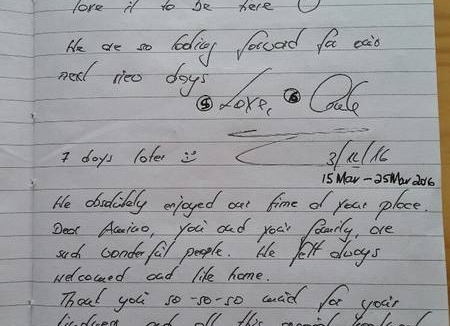 love it to be here
We are so looking forward for our
next nice days
Love,
7 days later
3/11/16
15 Mar - 25 Mar 2016
We absolutely enjoyed our time at your place.
Dear Amino, you and your family, are
such wonderful people. We felt always
welcomed and like home.
Thank you so-so-so much for your
kindness and all this